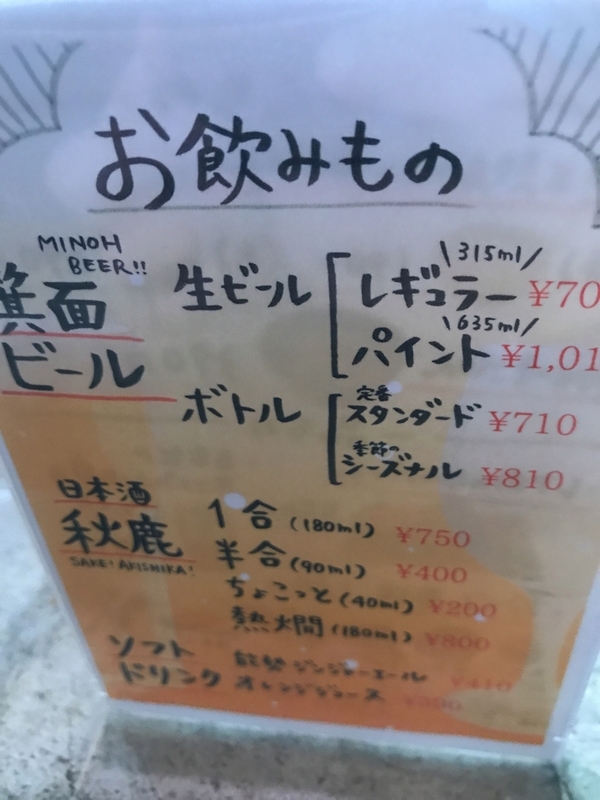 お飲みもの
MINOH
BEER!!
箕面
ビール
生ビール
\315ml/
レギュラー ¥70
\635ml/
パイント ¥1,01
ボトル
定番
スタンダード ¥710
季節の
シーズナル ¥810
日本酒
秋鹿
SAKE! AKISHIKA!
1合(180ml) ¥750
半合(90ml) ¥400
ちょこっと(40ml) ¥200
熱燗(180ml) ¥800
ソフト
ドリンク
能勢ジンジャーエール ¥410
オレンジジュース